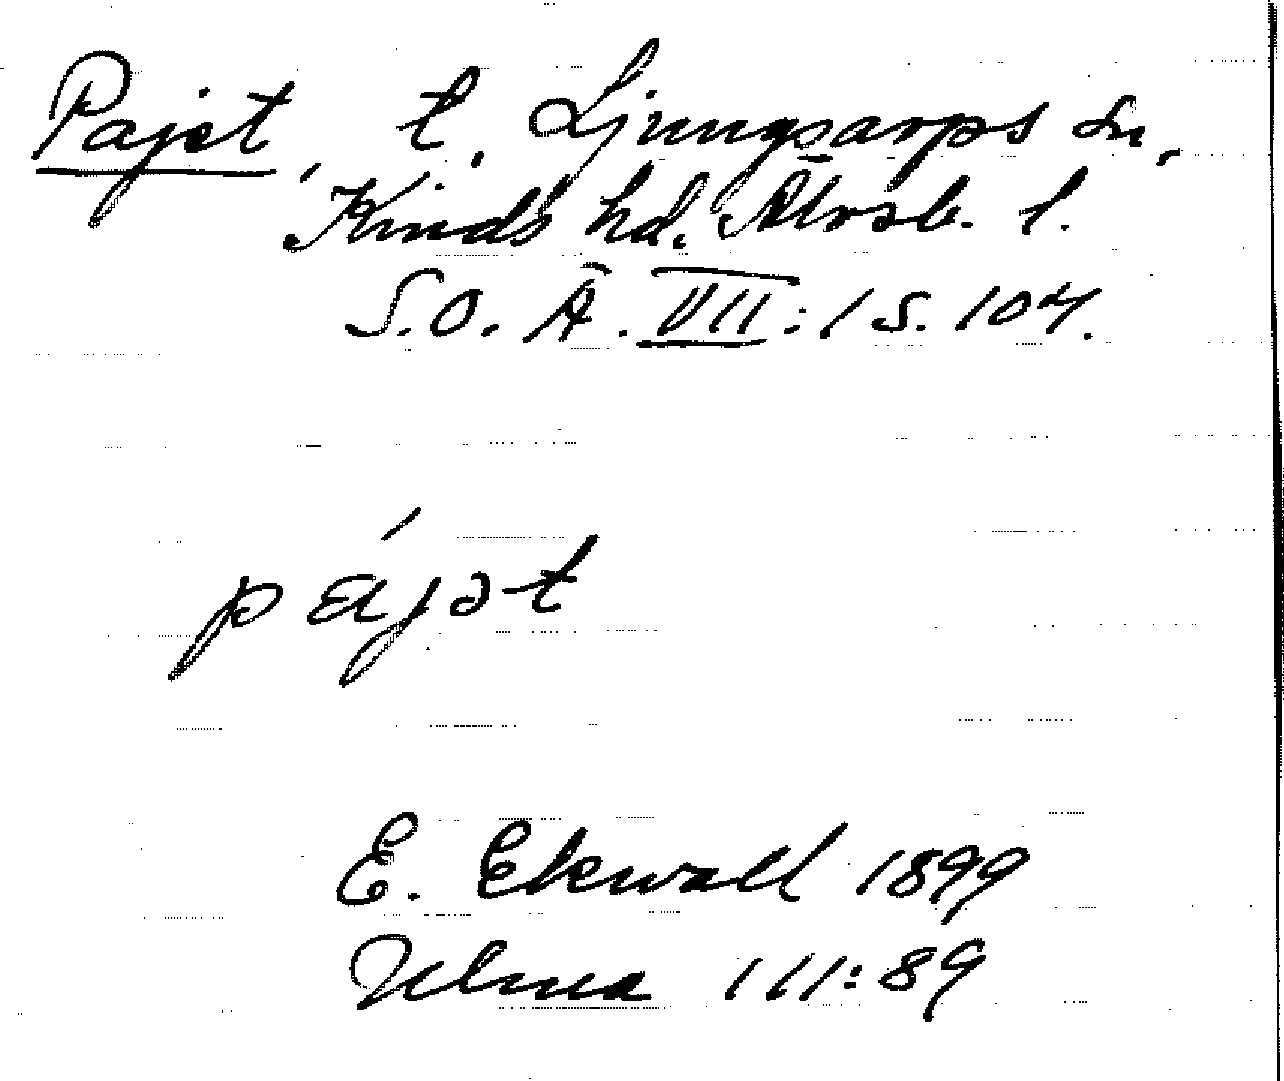 Pajet, t. Ljungsarps sn,
Kinds hd. Älvsb. l.
S.O. Ä. VII:1 s. 104.
pájət
E. Ekwall 1899
Ulma 111:89